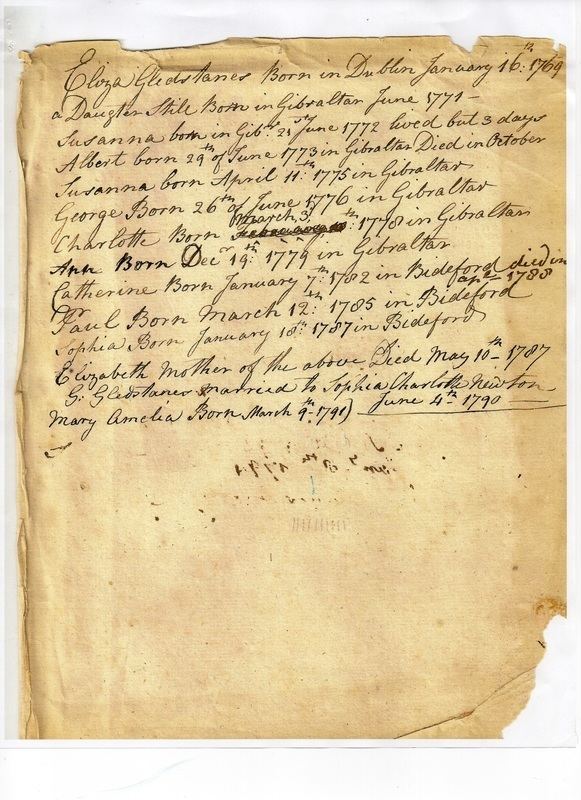 Eliza Gledstanes Born in Dublin January 16th: 1769
a Daugter Still Born in Gibraltar June 1771 -
Susanna born in Gibr 21st June 1772 lived but 3 days
Albert born 29th of June 1773 in Gibraltar Died in October
Susanna born April 11th: 1775 in Gibraltar
George Born 26th of June 1776 in Gibraltar
March 3
Charlotte Born th: 1778 in Gibraltar
Ann Born Decr 19th: 1779 in Gibraltar
Catherine Born January 7th: 1782 in Bideford died in
1788
Paul Born March 12th: 1785 in Bideford
Sophia Born January 18th 1787 in Bideford
Elizabeth Mother of the above Died May 10th - 1787
G: Gledstanes married to Sophia Charlotte Newton
June 4th - 1790
Mary Amelia Born March 9th - 1791)